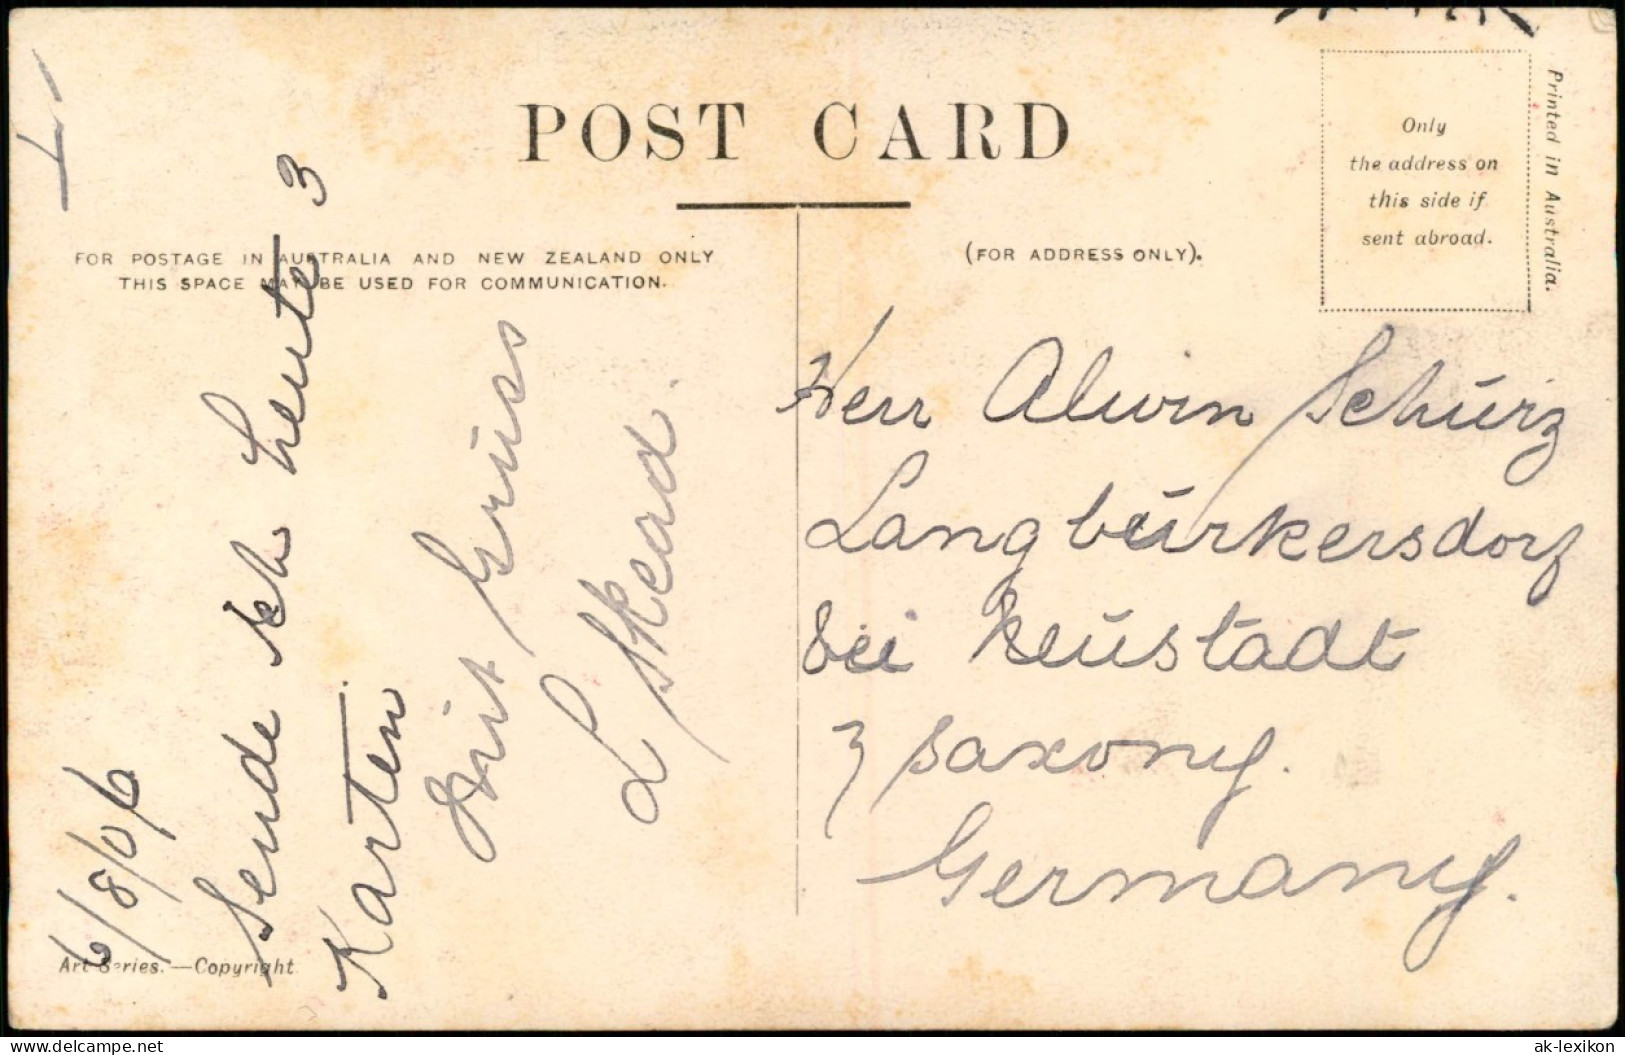 POST CARD
Only
the address on
this side if
sent abroad.
Printed in Australia.
FOR POSTAGE IN AUSTRALIA AND NEW ZEALAND ONLY
THIS SPACE MAY BE USED FOR COMMUNICATION.
(FOR ADDRESS ONLY).
6/8/06
Sende ich heute 3
Karten
Mit Gruss
L Skerd.
Herr Alwin Schürz
Langbürkersdorf
bei Neustadt
Saxony.
Germany.
Art Series.—Copyright
delcampe.net
ak-lexikon